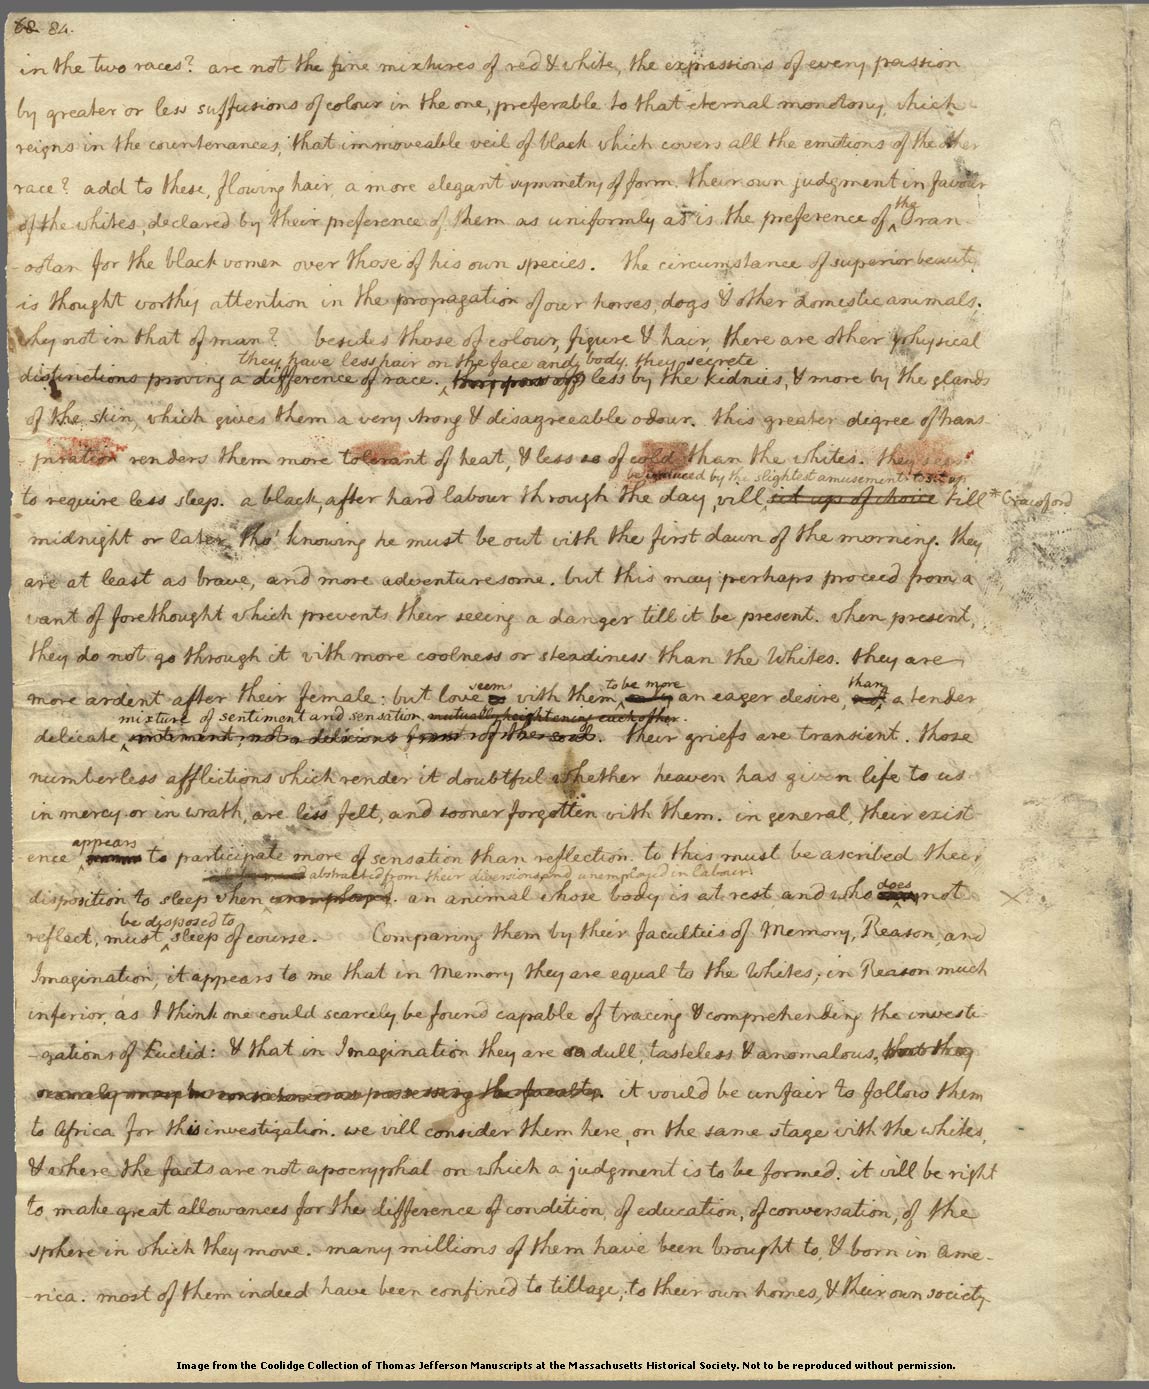 68 84.
in the two races? are not the fine mixtures of red & white, the expressions of every passion
by greater or less suffusions of colour in the one, preferable to that eternal monotony, which
reigns in the countenances, that immoveable veil of black which covers all the emotions of the other
race? add to these, flowing hair, a more elegant symmetry of form, their own judgment in favour
the
of the whites, declared by their preference of them as uniformly as is the preference of Oran-
-ootan for the black women over those of his own species. the circumstance of superior beauty,
is thought worthy attention in the propagation of our horses, dogs & other domestic animals.
why not in that of man? besides those of colour, figure & hair, there are other physical
they have less hair on the face and body. they secrete
distinctions proving a difference of race. less by the kidnies, & more by the glands
of the skin, which gives them a very strong & disagreeable odour. this greater degree of trans-
-piration renders them more tolerant of heat, & less so of cold than the whites. they seem
be induced by the slightest amusements to sit up
to require less sleep. a black, after hard labour through the day, will set up of choice till * Crawford
midnight or later, tho' knowing he must be out with the first dawn of the morning. they
are at least as brave, and more adventuresome. but this may perhaps proceed from a
want of forethought which prevents their seeing a danger till it be present. when present,
they do not go through it with more coolness or steadiness than the Whites. they are
seems to be more than
more ardent after their female: but love with them an eager desire, a tender
mixture of sentiment and sensation mutually heightening each other.
delicate sentiment, not a delicious of the soul. their griefs are transient. those
numberless afflictions which render it doubtful whether heaven has given life to us
in mercy or in wrath, are less felt, and sooner forgotten with them. in general, their exist-
appears
ence to participate more of sensation than reflection. to this must be ascribed their
abstracted from their diversions and unemployed in labour.
does
disposition to sleep when unemployed. an animal whose body is at rest and who not
be disposed to
reflect, must sleep of course. Comparing them by their faculties of Memory, Reason, and
Imagination, it appears to me that in Memory they are equal to the Whites; in Reason much
inferior, as I think one could scarcely be found capable of tracing & comprehending the investi-
-gations of Euclid: & that in Imagination they are so dull, tasteless & anomalous, that they
possessing the faculty. it would be unfair to follow them
to Africa for this investigation. we will consider them here, on the same stage with the whites,
& where the facts are not apocryphal on which a judgment is to be formed. it will be right
to make great allowances for the difference of condition, of education, of conversation, of the
sphere in which they move. many millions of them have been brought to, & born in Ame-
-rica. most of them indeed have been confined to tillage, to their own homes, & their own society.
Image from the Coolidge Collection of Thomas Jefferson Manuscripts at the Massachusetts Historical Society. Not to be reproduced without permission.